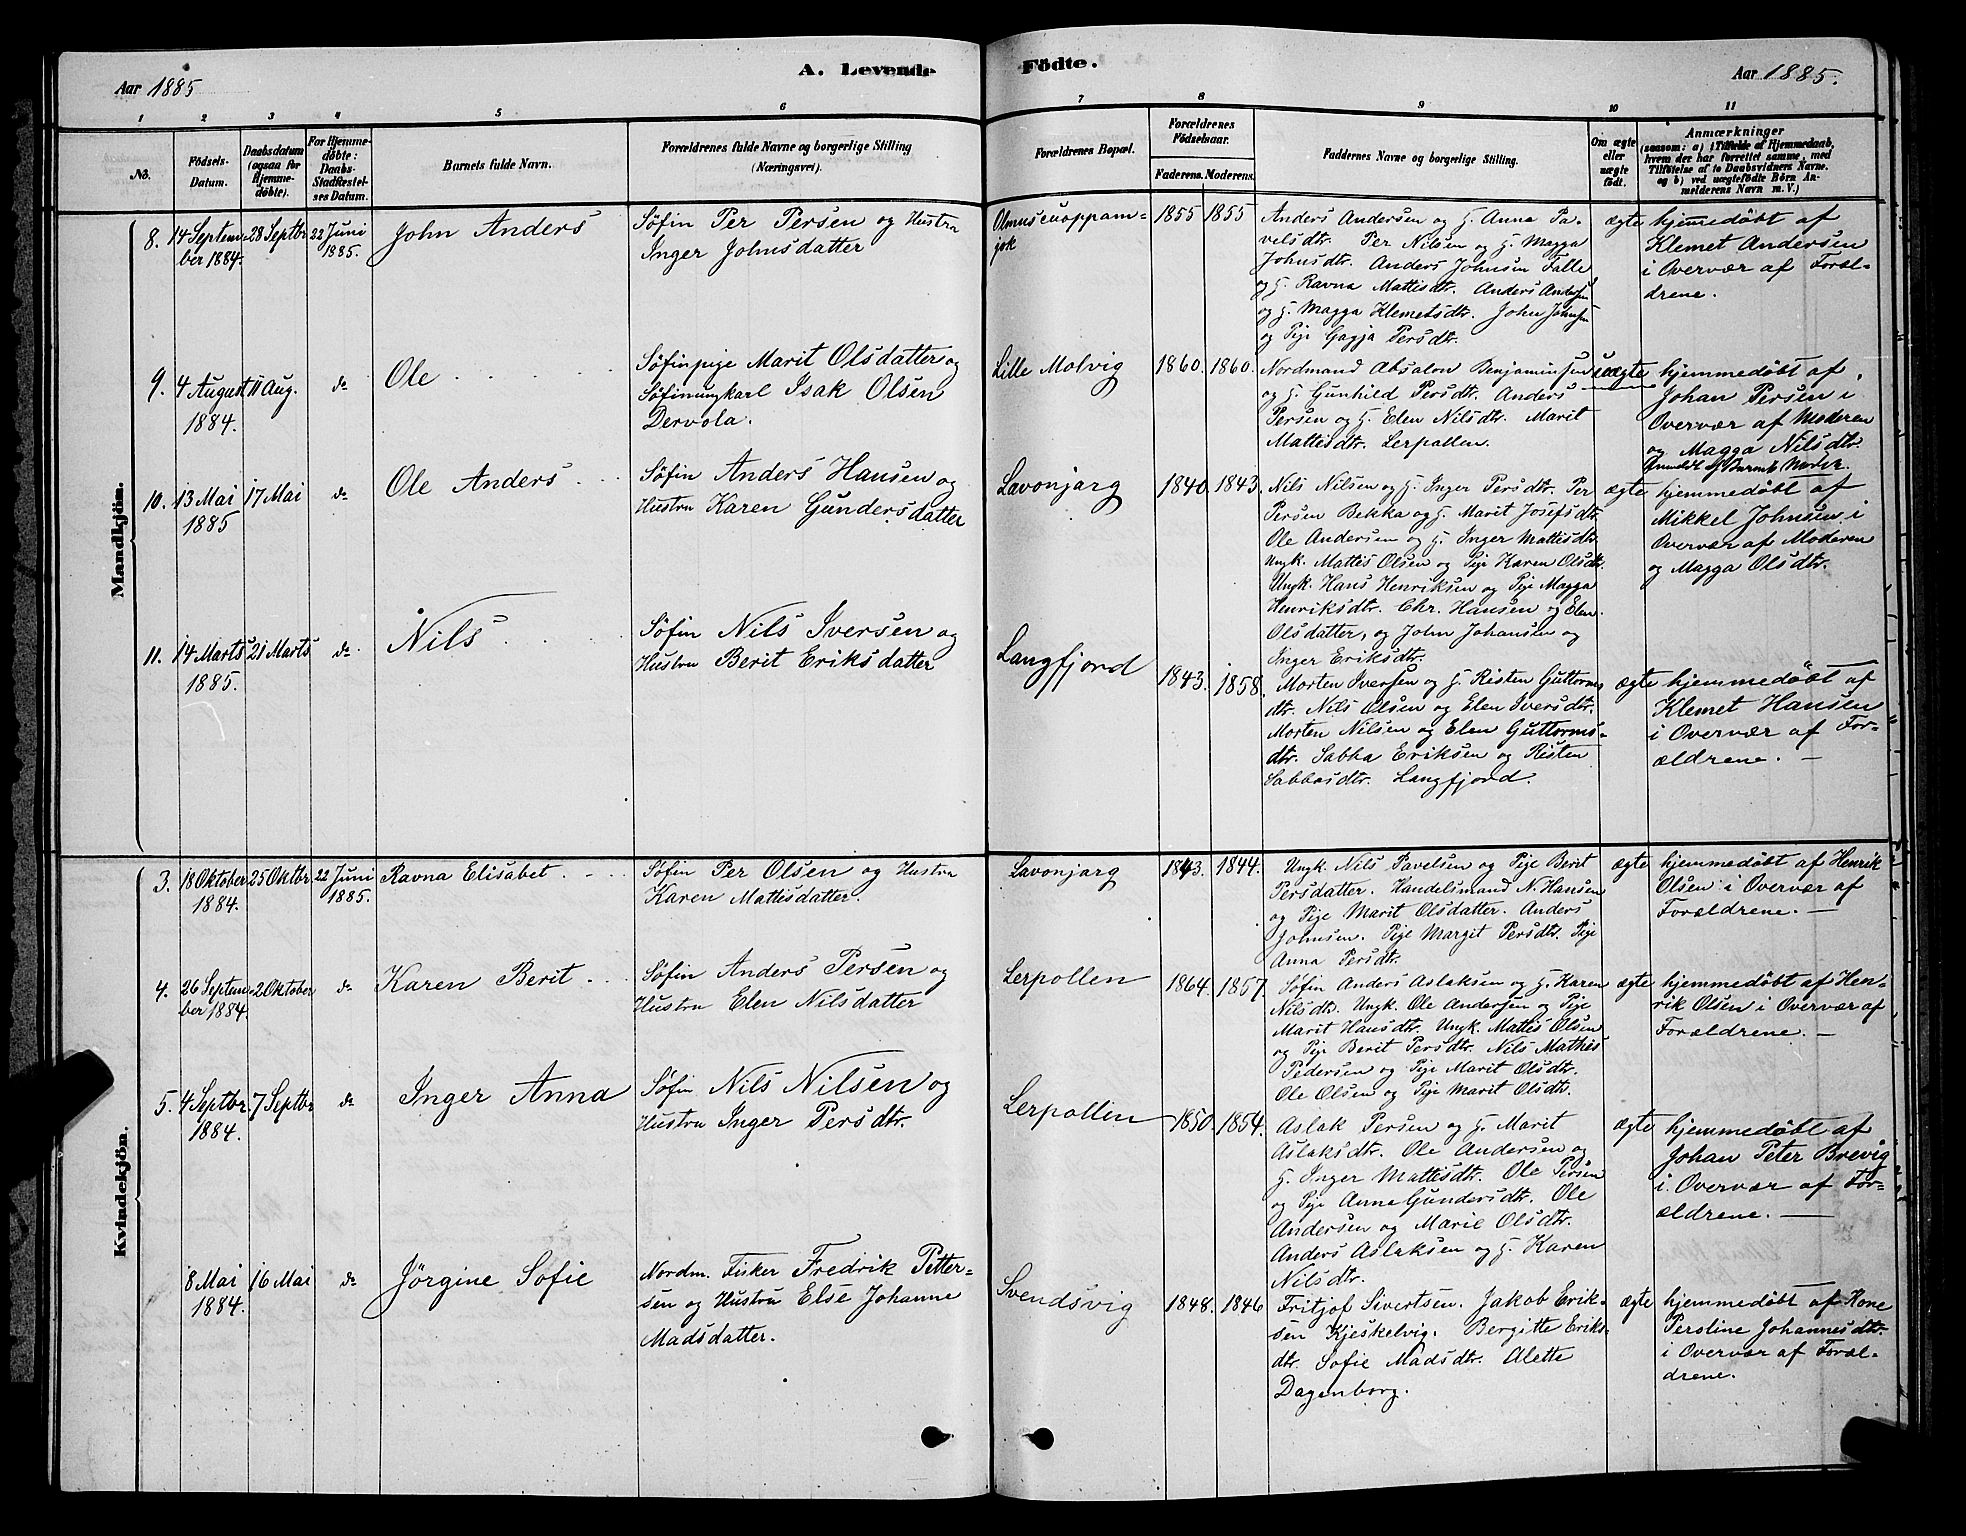 Aar 1885
A. Levende
Födte.
Aar 1885.
1 2 3 4 5 6 7 8 9 10 11
No.
Födsels-
Datum.
Daabsdatum
(ogsaa for
Hjemme-
döbte).
For Hjemme-
döbte:
Daabs-
Stadfæstel-
ses Datum.
Barnets fulde Navn.
Forældrenes fulde Navne og borgerlige Stilling
(Næringsvei).
Forældrenes Bopæl.
Forældrenes
Födselsaar.
Faderens. Moderens.
Faddernes Navne og borgerlige Stilling.
Om ægte
eller
uægte
født.
Anmærkninger
(saasom: a) i Tilfælde af Hjemmedaab,
hvem der har forrettet samme, med
Tilföielse af to Daabsvidners Navne.
og b) ved uægtefödte Börn An-
melderens Navn m. V.)
Mandkjön.
8.
14 Septem-
ber 1884.
28 Septbr
22 Juni
1885.
John Anders
Søfin Per Persen og Hustru
Inger Johnsdatter
Olmuscuoppam-
jok
1855 1855
Anders Andersen og H. Anna Pa-
velsdtr. Per Nilsen og H. Magga
Johnsdtr. Anders Johnsen Falle
og H. Ravna Mattisdtr. Anders Andersen
og H. Magga Klemetsdtr. John Johnsen
og Pige Gagja Persdtr.
ægte
hjemmedøbt af
Klemet Andersen
i Overvær af Foræl-
drene.
9.
4 August
1884.
11 Aug.
do
Ole
Søfinpige Marit Olsdatter og
Søfinungkarl Isak Olsen
Dervola.
Lille Molvig
1860. 1860.
Nordmand Absalon Benjaminsen
og H. Gunhild Persdtr. Anders
Persen og H. Elen Nilsdtr. Marit
Mattisdtr. Lerpollen.
uægte
hjemmedøbt af
Johan Persen i
Overvær af Moderen
og Magga Nilsdtr.
Anmeldt af Barnets Moder.
10.
13 Mai
1885
17 Mai
do
Ole Anders
Søfin Anders Hansen og
Hustru Karen Gundersdatter
Lavonjarg
1840. 1843.
Nils Nilsen og H. Inger Persdtr. Per
Persen Bekka og H. Marit Josefsdtr.
Ole Andersen og H. Inger Mattisdtr.
Ungk. Mattis Olsen og Pige Karen Olsdtr.
Ungk. Hans Henriksen og Pige Magga
Henriksdtr. Chr. Hansen og Elen
Olsdatter, og John Johansen og
Inger Eriksdtr.
ægte
hjemmedøbt af
Mikkel Johnsen i
Overvær af Moderen
og Magga Olsdtr.
11.
14 Marts
1885.
21 Marts
do
Nils
Søfin Nils Iversen og
Hustru Berit Eriksdatter
Langfjord
1843. 1858.
Morten Iversen og H. Risten Guttorms
dtr. Nils Olsen og Elen Iversdtr.
Morten Nilsen og Elen Guttorms-
dtr. Sabba Eriksen og Risten
Sabbasdtr. Langfjord.
ægte
hjemmedøbt af
Klemet Hansen
i Overvær af For-
ældrene. —
Kvindekjön.
3.
18 Oktober
1884.
25 Oktbr.
22 Juni
1885.
Ravna Elisabet
Søfin Per Olsen og Hustru
Karen Mattisdatter.
Lavonjarg
1843. 1844.
Ungk. Nils Pavelsen og Pige Berit
Persdatter. Handelsmand N. Hansen
og Pige Marit Olsdatter. Anders
Johnsen. Pige Margit Persdtr. Pige
Anna Persdtr.
ægte
hjemmedøbt af Henrik
Olsen i Overvær af
Forældrene. —
4.
26 Septem-
ber 1884.
2 Oktober
do
Karen Berit
Søfin Anders Persen og
Hustru Elen Nilsdatter
Lerpollen
1864. 1857.
Søfin Anders Aslaksen og H. Karen
Nilsdtr. Ungk. Ole Andersen og Pige
Marit Hansdtr. Ungk. Mattis Olsen
og Pige Berit Persdtr. Nils Mathis
Pedersen og Pige Marit Olsdtr.
Ole Olsen og Pige Marit Olsdtr.
ægte
hjemmedøbt af Hen-
rik Olsen i Overvær af
Forældrene. —
5.
4 Septbr.
1884.
7 Septbr
do
Inger Anna
Søfin Nils Nilsen og
Hustru Inger Persdtr.
Lerpollen
1850. 1854.
Aslak Persen og H. Marit
Aslaksdtr. Ole Andersen og
H. Inger Mattisdtr. Ole Persen
og Pige Anna Gundersdtr. Ole
Andersen og Marie Olsdtr.
Anders Aslaksen og H. Karen
Nilsdtr.
ægte
hjemmedøbt af
Johan Peter Brevig
i Overvær af For-
ældrene. —
8 Mai
1884.
16 Mai
do
Jörgine Sofie
Nordm. Fisker Fredrik Petter-
sen og Hustru Else Johanne
Madsdatter.
Svendsvig
1848. 1846
Fritjof Sivertsen. Jakob Erik-
sen Kjeskelvig. Bergitte Eriks-
dtr. Sofie Madsdtr. Alette
Dagenborg.
ægte
hjemmedøbt af Kone
Peroline Johannesdtr.
i Overvær af Foræl-
drene.